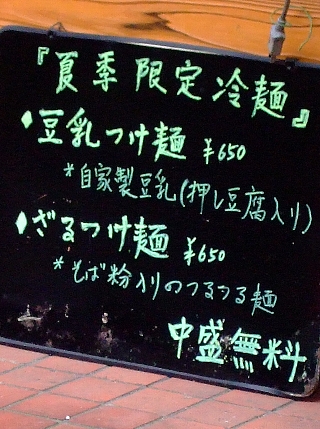 『夏季限定冷麺』
豆乳つけ麺 ¥650
*自家製豆乳(押し豆腐入り)
ざるつけ麺 ¥650
*そば粉入りのつるつる麺
中盛無料